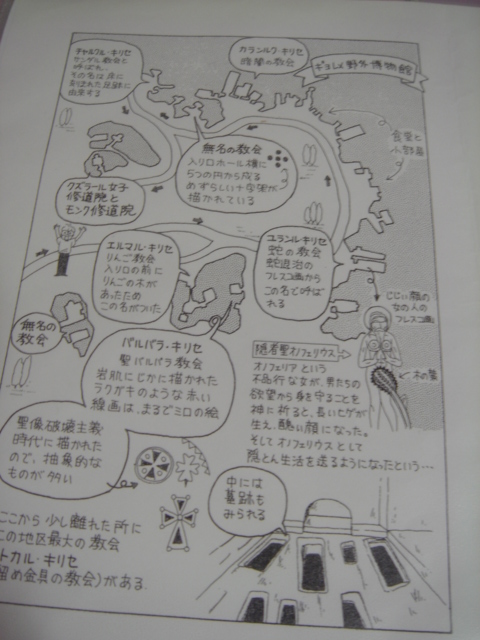 チャルクル・キリセ
サンダル教会と
呼ばれ、
その名は床に
刻まれた足跡に
由来する
カランルク・キリセ
暗闇の教会
ギョレメ野外博物館
食堂と
小野房
無名の教会
入り口ホール横に
5つの円から成る
めずらしい十字架が
描かれている
クズラール女子
修道院と
モンク修道院
エルマル・キリセ
りんご教会
入り口の前に
りんごの木が
あったため
この名がついた
ユランル・キリセ
蛇の教会
蛇退治の
フレスコ画から
この名で呼ば
れる
じじい顔の
なの人の
フレスコ画
木の葉
無名の
教会
バルバラ・キリセ
聖バルバラ教会
岩肌にじかに描かれた
ラクガキのような赤い
線画は、まるでミロの絵
隠者聖オノフェリウス
オノフェリアという
不品行な女が、男たちの
欲望から身を守ることを
神に祈ると、長いヒゲが
生え、醜い顔になった。
そしてオノフェリウスとして
隠とん生活を送るようになったという…
聖像破壊主義
時代に描かれた
ので、抽象的な
ものが多い
中には
墓跡も
みられる
ここから少し離れた所に
この地区最大の教会
トカル・キリセ
留め金具の教会)がある.